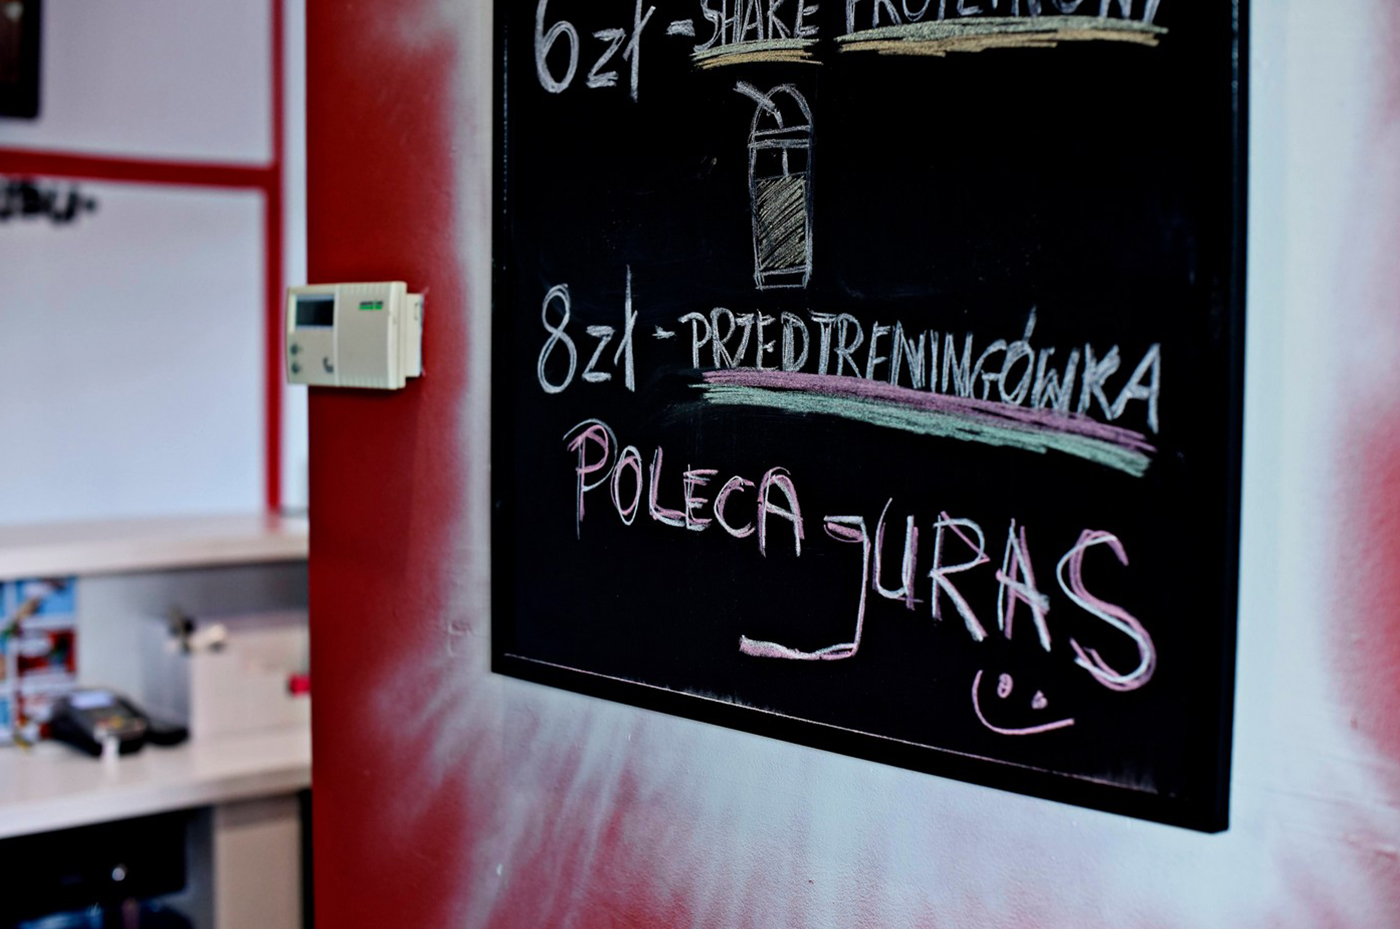 6 zł - SHAKE PROTEINOWY
8 zł - PRZEDTRENINGÓWKA
POLECA
JURAS